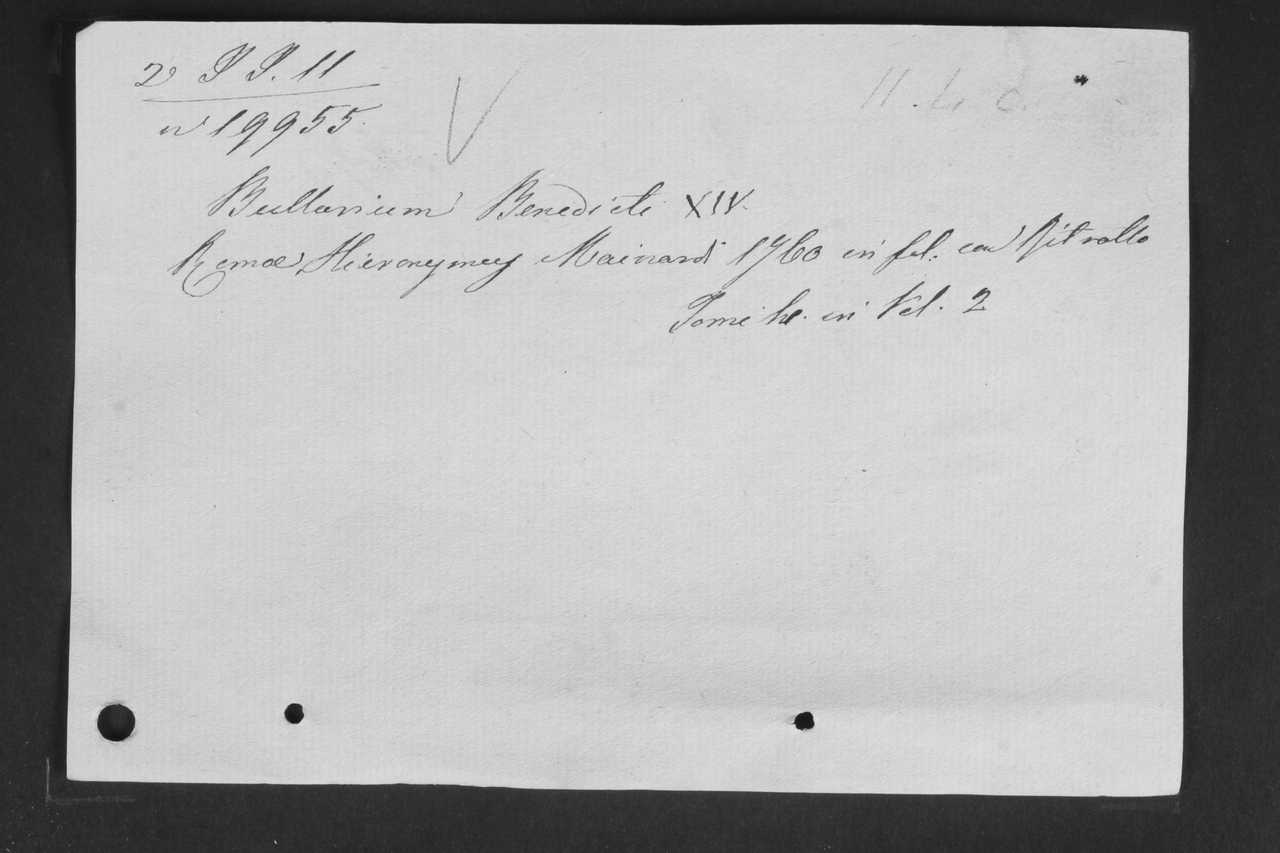 2 P P. 11
n 19955.
V
11. L. c.
Bullarium Benedicti XIV.
Romæ Hieronymus Mainardi 1760 in fol. con Ritratto
Tomi in Vol. 2